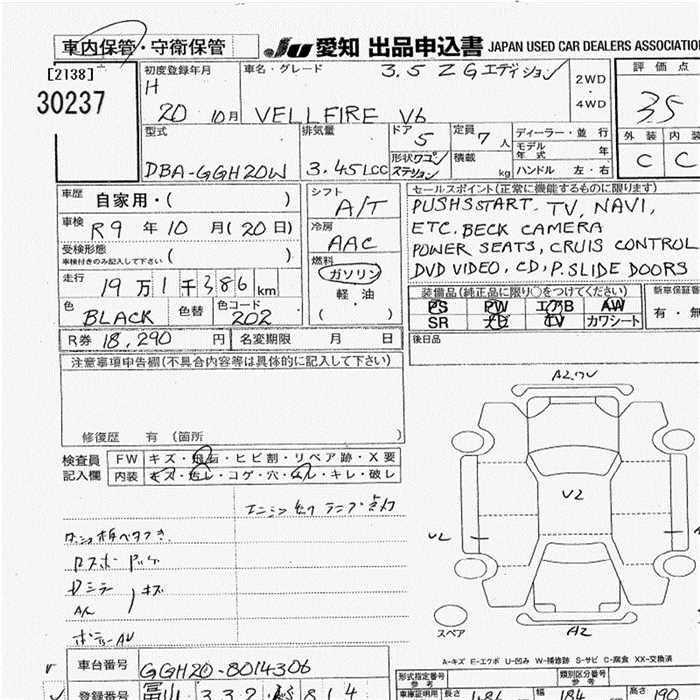 車内保管・守衛保管
JU 愛知 出品申込書 JAPAN USED CAR DEALERS ASSOCIATION
[2138]
30237
初度登録年月 車名・グレード 3.5 Z Gエディション 2WD・4WD 評価点
H 20 10月 VELLFIRE V6 3.5
型式 排気量 ドア 5 定員 7人 ディーラー・並行 外装 内装
DBA-GGH20W 3.45LCC 形状 ワゴン ステーション 積載 kg モデル年式 年 ハンドル 左・右 C C
車歴 自家用・( ) シフト A/T セールスポイント(正常に機能するものに限ります)
車検 R9年10月(20日) 冷房 AAC PUSHSSTART. TV, NAVI,
受検形態 ( ) ETC. BECK CAMERA
車検付きのみ記入して下さい 燃料 ガソリン POWER SEATS, CRUIS CONTROL
走行 19万1千386km 軽・油 DVD VIDEO, CD, P. SLIDE DOORS
色 BLACK 色替 色コード 202 ( ・ )
装備品(純正品に限り○をつけてください) 新車保証書
PS PW エアB AW 有・無
SR ナビ TV カワシート
R券 18,290円 名変期限 月 日 後日品
注意事項申告欄(不具合内容等は具体的に記入して下さい)
修復歴 有(箇所 )
検査員 FW キズ・飛石・ヒビ割・リペア跡・X要
記入欄 内装 キズ・汚レ・コゲ・穴・キレ・破レ
ランプ点灯
キズ
A2
V2
スペア
A2
A-キズ E-エクボ U-凹み W-補修跡 S-サビ C-腐食 XX-交換済
車台番号 GGH20-8014306
登録番号 富山 332 814
形式指定番号 参考 類別区分番号 参考
車庫証明用 長さ 幅 184 高さ 190